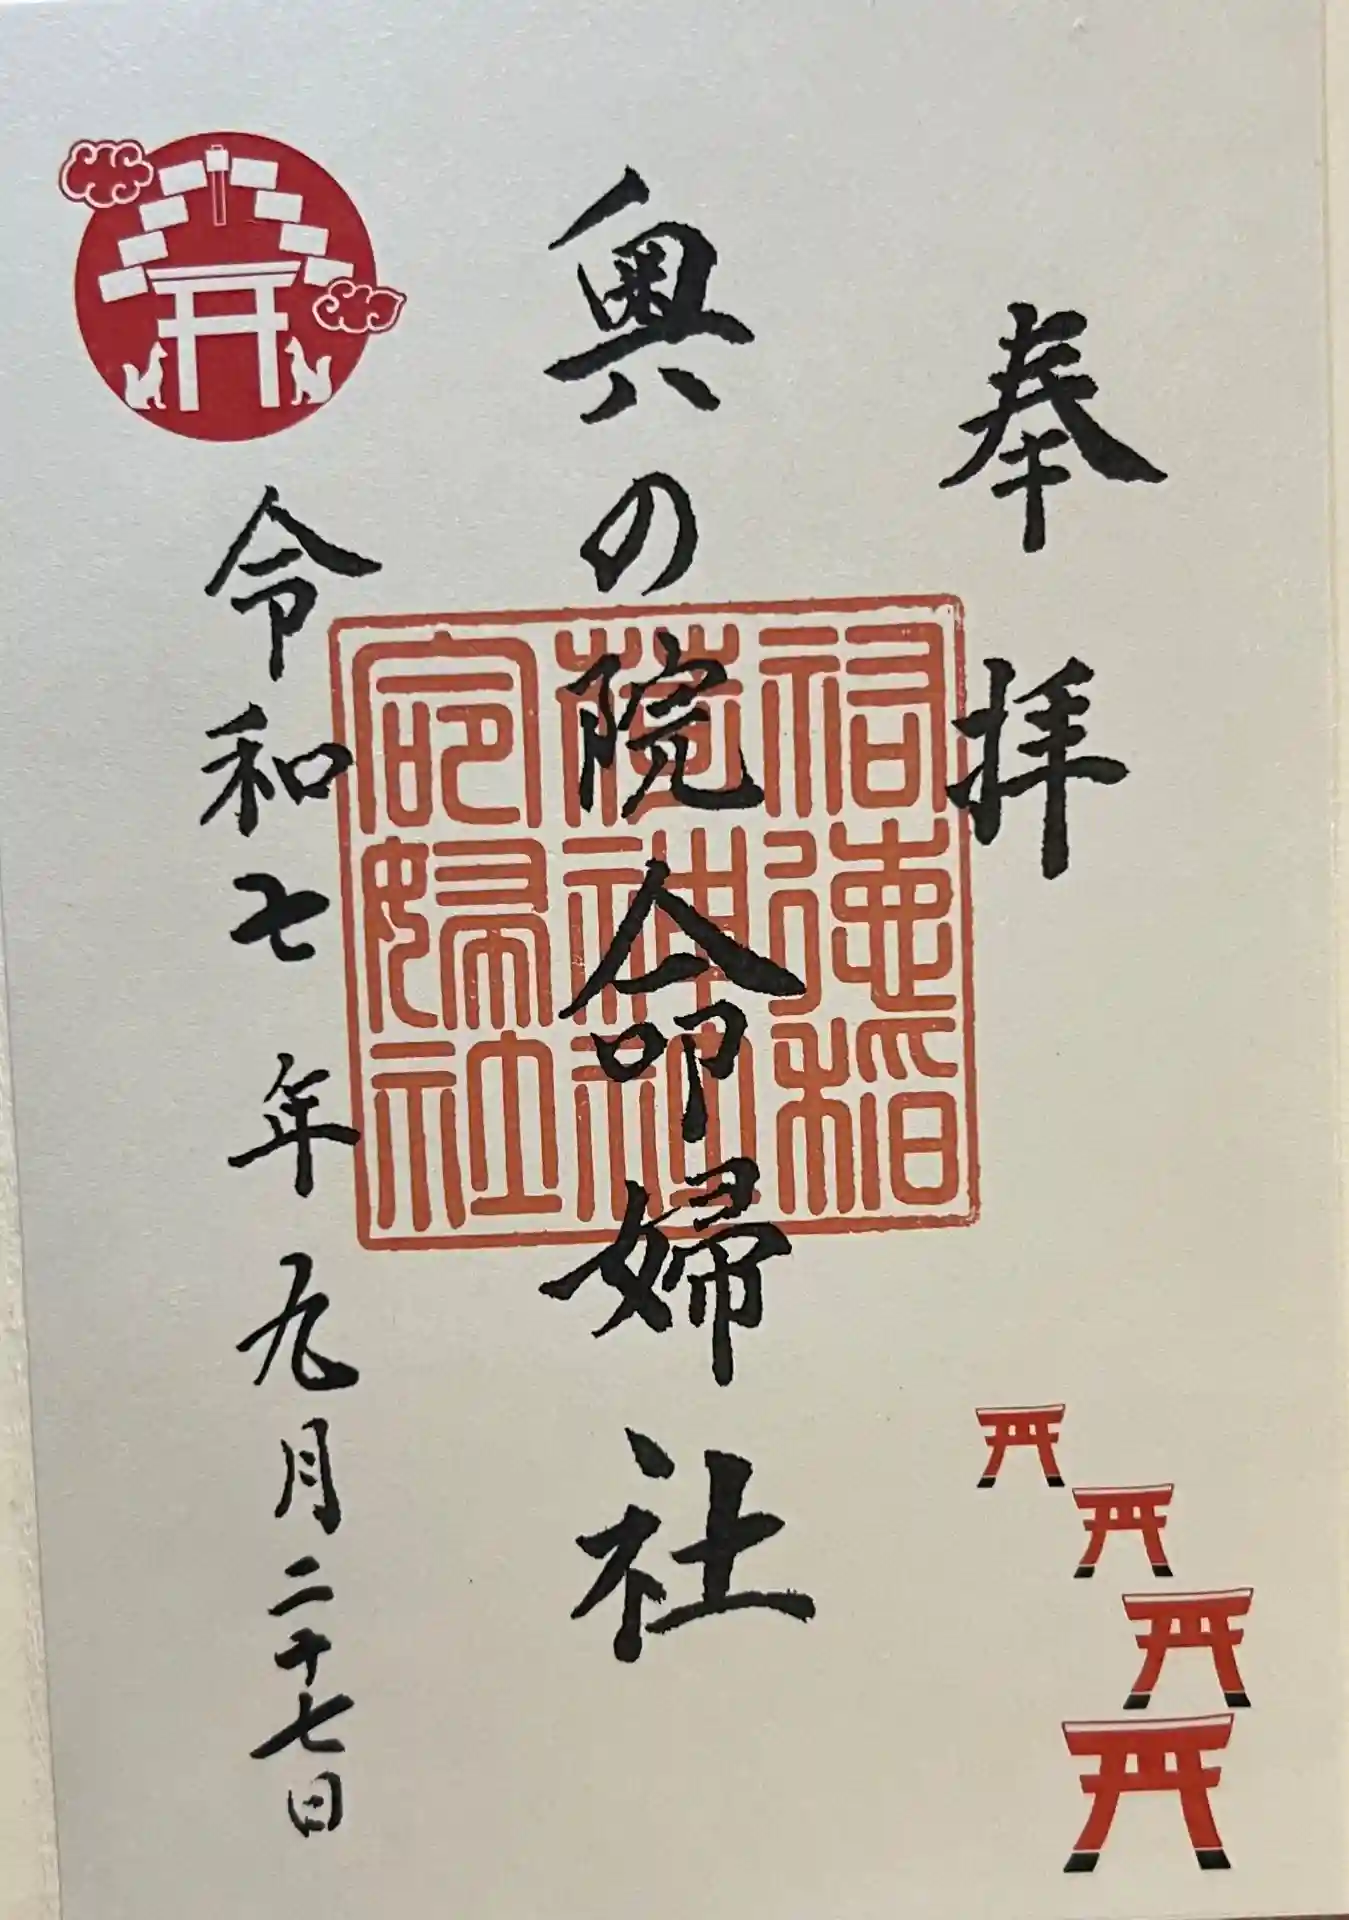 奉拝
奥の院命婦社
令和七年九月二十七日
祐徳稲
荷神社
命婦社